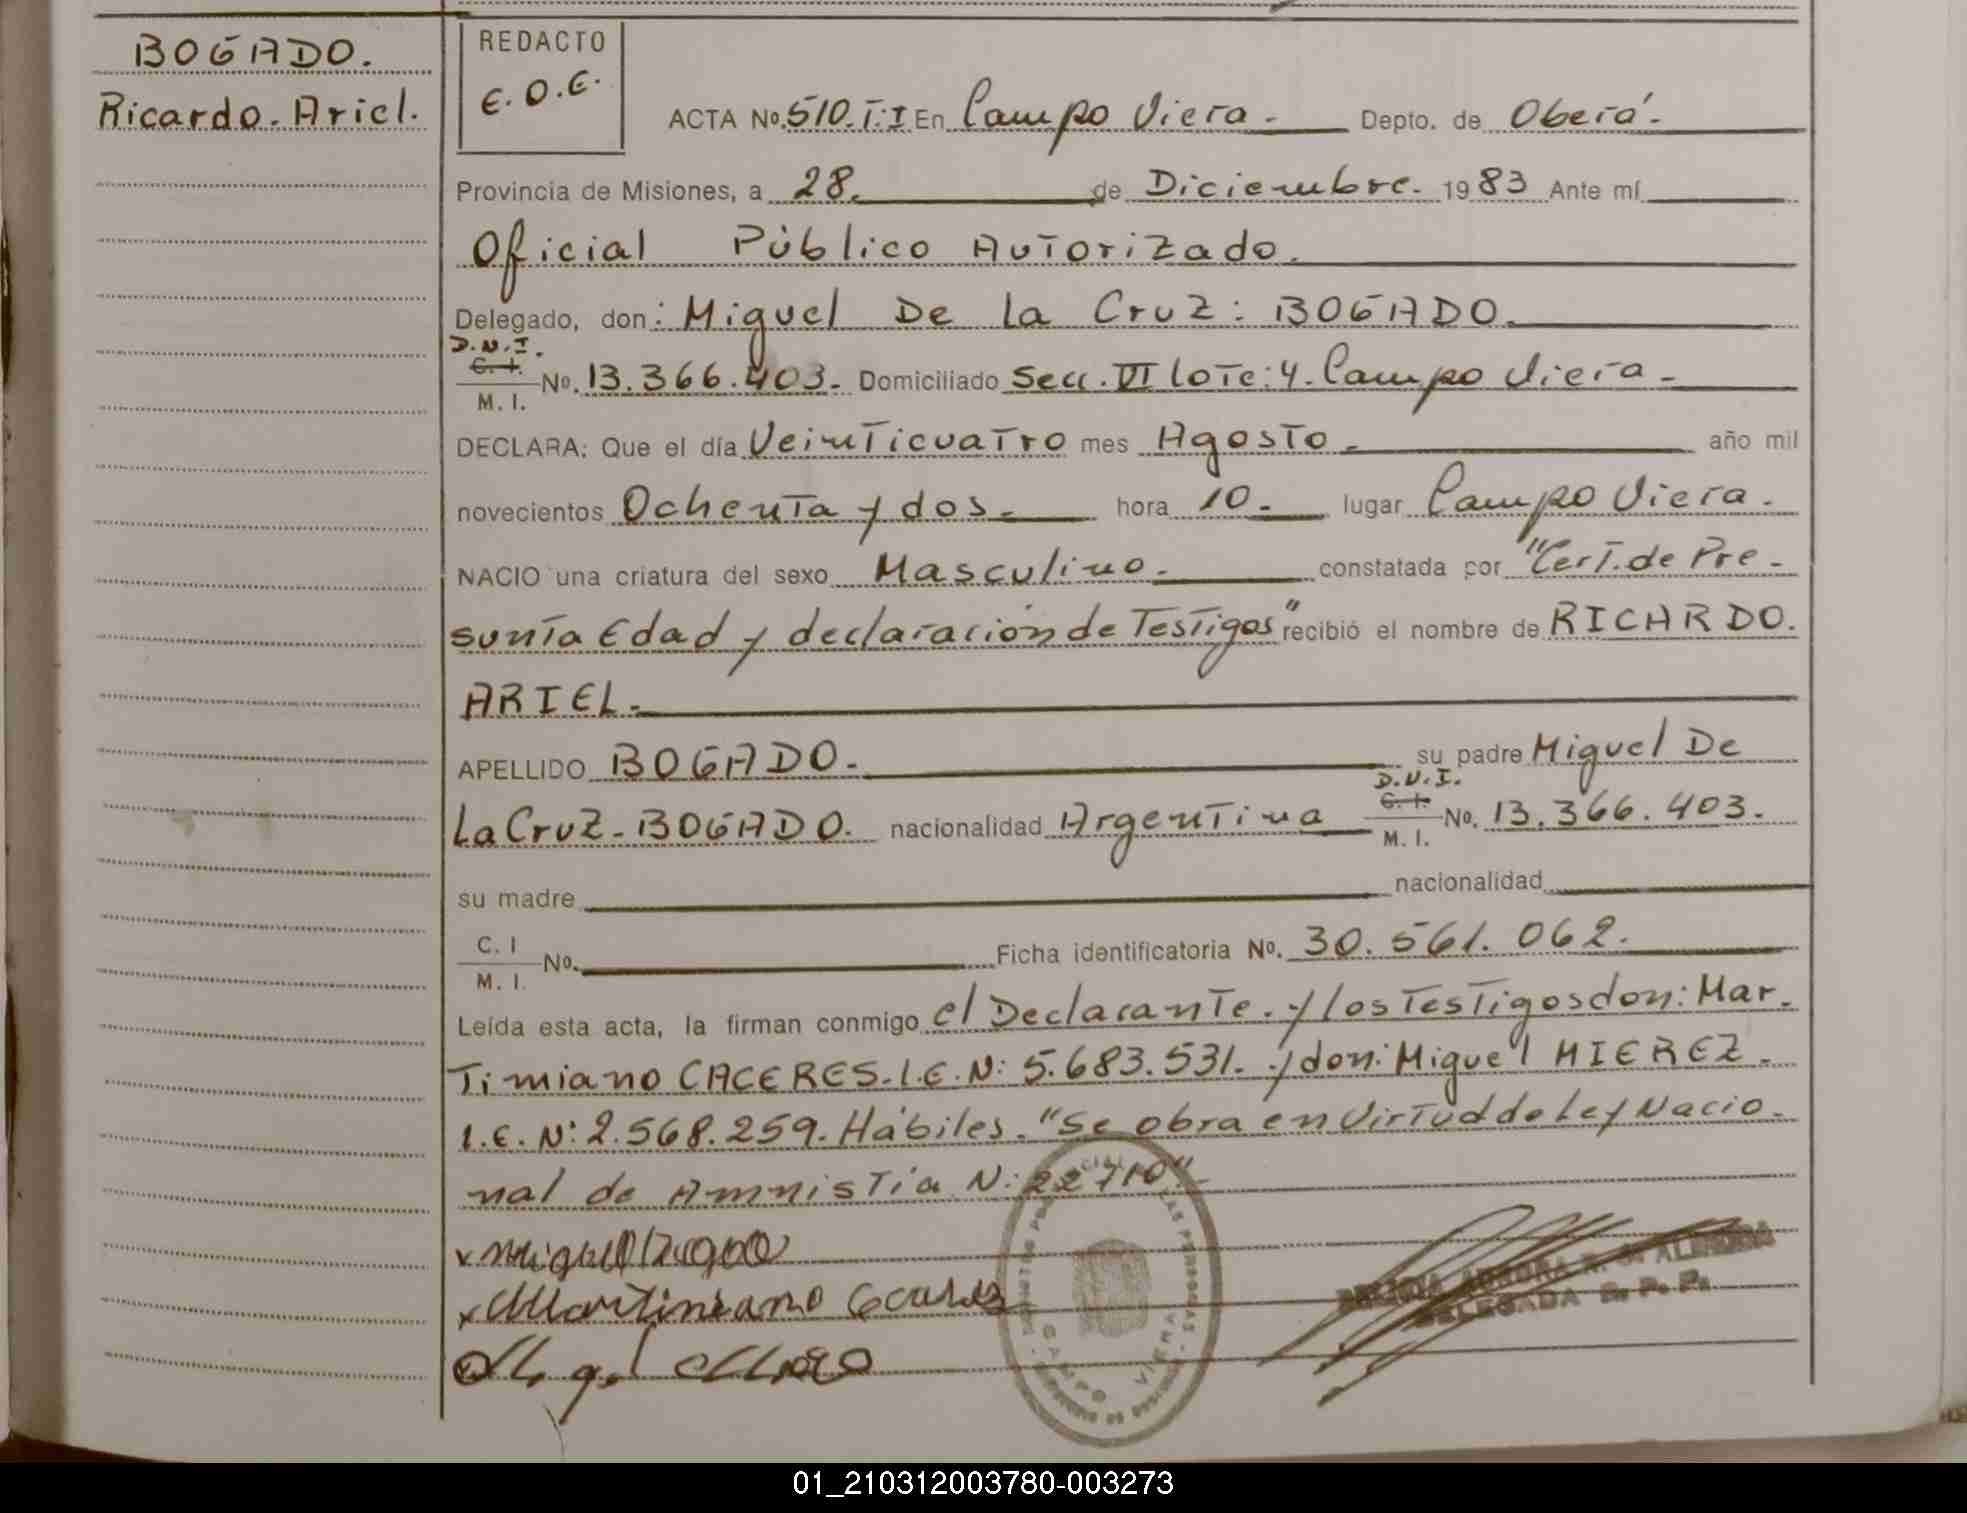 BOGADO.
Ricardo. Ariel.
REDACTO
E.O.E.
ACTA No. 510.T:I En Campo Viera.- Depto. de Oberá.-
Provincia de Misiones, a 28. de Diciembre. 1983 Ante mí
Oficial Público Autorizado.
Delegado, don: Miguel De La Cruz: BOGADO.
D.N.I.
C. I.
M. I.
No. 13.366.403.- Domiciliado Secc. VI Lote: 4. Campo Viera.-
DECLARA: Que el día Veinticuatro mes Agosto.- año mil
novecientos Ochenta y dos.- hora 10.- lugar Campo Viera.
NACIO una criatura del sexo Masculino.- constatada por "Cert. de Pre-
sunta Edad y declaración de Testigos" recibió el nombre de RICARDO.
ARIEL.-
APELLIDO BOGADO.- su padre Miguel De
D.N.I.
La Cruz- BOGADO. nacionalidad Argentina C. I. M. I. No. 13.366.403.
su madre nacionalidad
C. I
M. I.
No. Ficha identificatoria No. 30.561.062.
Leída esta acta, la firman conmigo el Declarante. y los Testigos don: Mar-
Timiano CACERES. L.E.N: 5.683.531. y don: Miguel MIEREZ-
L.E. N: 2.568.259. Hábiles. "Se obra en Virtud de Ley Nacio-
nal de Amnistía N: 22710".
Miguel
Martiniano
CAMPO VIERA
DELEGADA R. P. P.
01_210312003780-003273